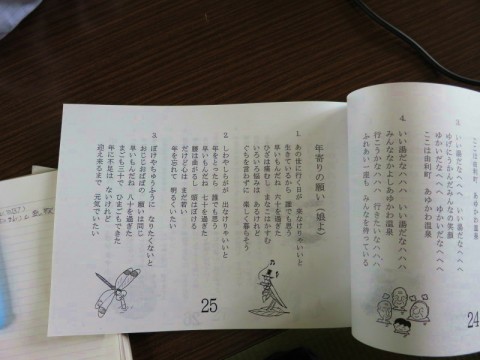 ここは由利町　あゆかわ温泉
3.
いい湯だなヘヘヘ　いい湯だなヘヘヘ
ここは由利町　あゆかわ温泉
4.
いい湯だなヘヘヘ　いい湯だなヘヘヘ
みんななかよしあゆかわ温泉
ふれあい一座も　みんなを待っている
24
年寄りの願い（娘よ）
1.
あの世に行く日が　来なけりゃいいと
生きているから　誰でも思う
早いもんだね　六十を過ぎた
ひざは痛むし　まなこはかすむ
いろいろ悩みは　あるけれど
ぐちを言わずに　楽しく暮らそう
2.
しわやしらがが　出なけりゃいいと
年をとったら　誰でも思う
早いもんだね　七十を過ぎた
腰は曲がるし　頭はぼける
だけど心は　まだ若い
年を忘れて　明るくいたい
3.
ぼけやちゅうふうに　なりたくないと
おじじおばばの　願いは同じ
早いもんだね　八十を過ぎた
まごも三十で　ひまごもできた
年に不足は　ないけれど
迎え来るまで　元気でいたい
25